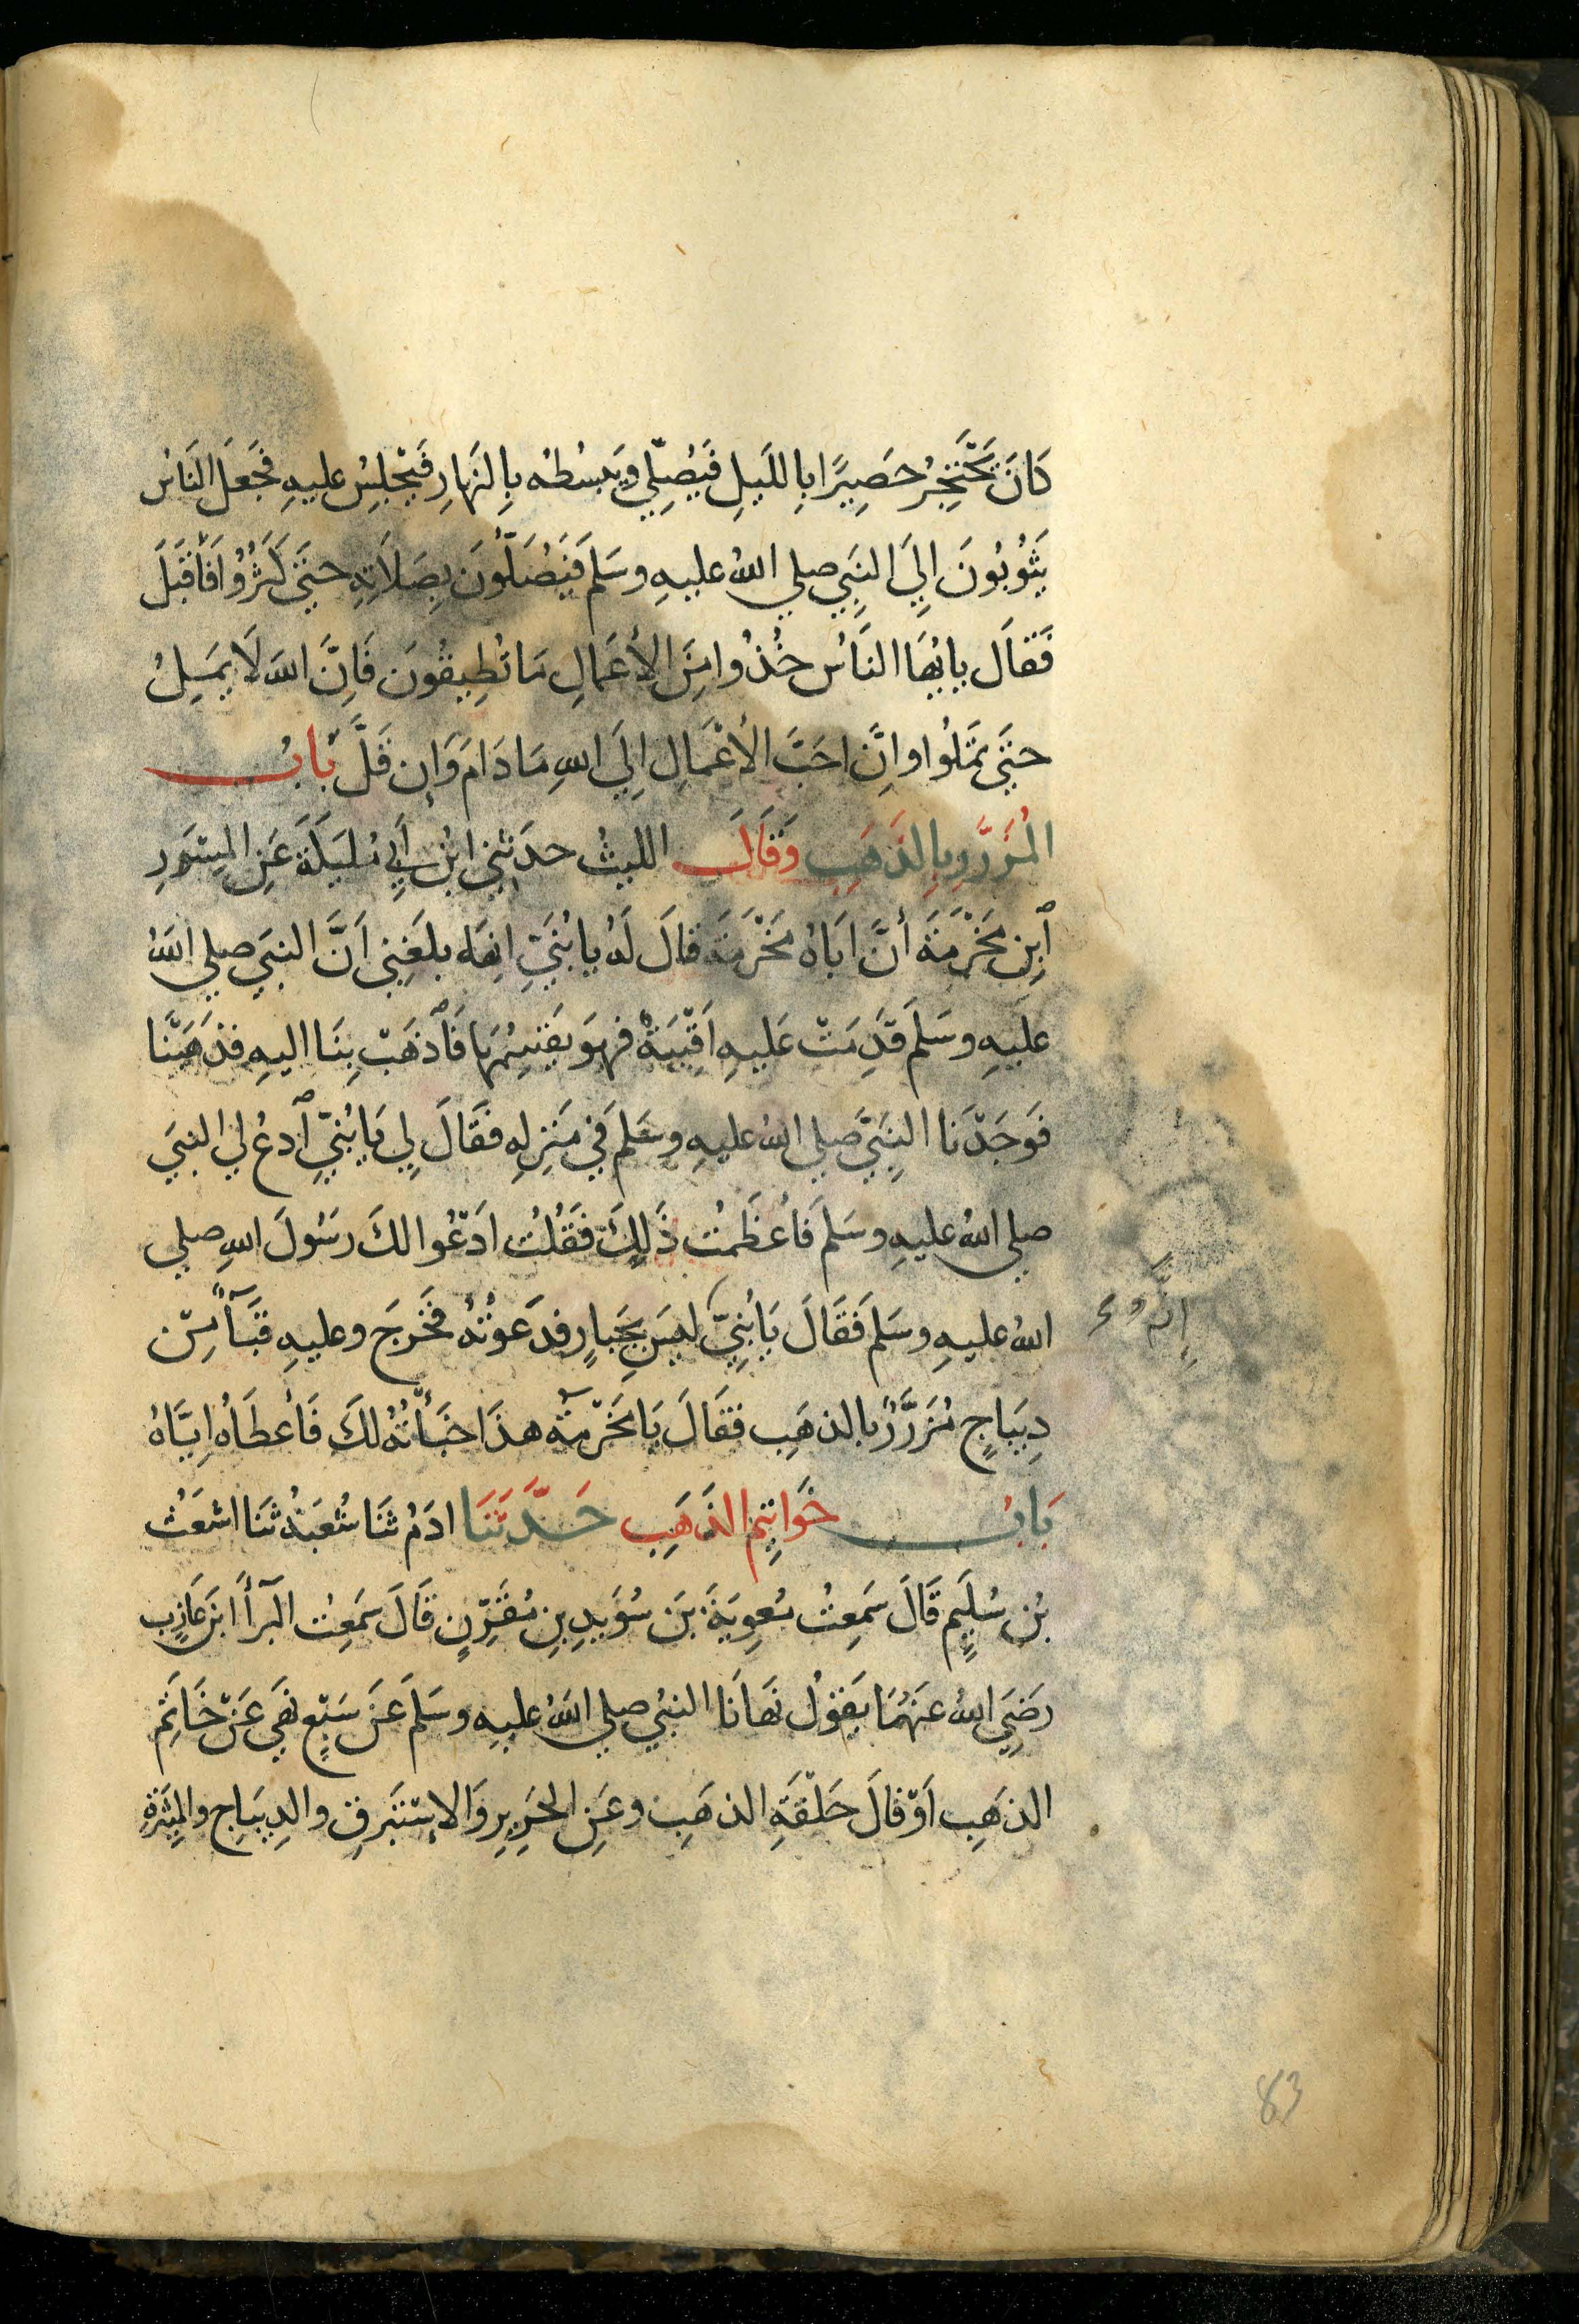 كَانَ يَحْتَجِرُ حَصِيرًا بِاللَّيلِ فَيُصَلِّي وَيَبْسُطُه بِالنَّهَارِ فَيَجْلِسُ عليهِ فَجَعَلَ النَاسُ
يَثُوبُونَ اِلَي النَّبِي صلي اللهُ عليهِ وسَلم فَيُصَلُّونَ بِصَلَاتِهِ حتَي كَثُرُوْا فَأَقبَلَ
فَقَالَ يايُّهَا النَاسُ خُذُوا مِنَ الأَعْمَالِ مَا تُطِيقُونَ فَاِنَّ اللهَ لَا يَمَلُ
حتَي تمَلُوا وانَّ احَبَّ الأعْمَالِ اِلَي اللهِ مَا دَامَ وَاِن قَلَّ بَابُ
المُزَرَّرِ بِالذَهَبِ وَقَالَ الليثُ حدَثنِي ابْنُ أَبِي مُلَيكَةَ عَنِ المِسْوَرِ
ٱبِن مَخْرَمَةَ أنَّ ابَاهُ مَخْرَمَةَ قالَ لَهُ يا بُنَيِّ انهُ بلغَنِي اَنَّ النبَي صلي اللهُ
عليهِ وسَلَم قَدِمَتْ عَليهِ اَقْبِيَةٌ فهوَ يَقسِمُهَا فَٱذهَبْ بِنَا اليهِ فذَهَبْنَا
فَوَجَدْنَا النبِيَّ صلي اللهُ عليهِ وسَلم في مَنزِلِهِ فقَالَ لِي يَا بُنيِّ ٱدعُ لي النبيَ
صلي اللهُ عليهِ وسَلم فَاعْظَمتُ ذَلِكَ فَقُلْتُ اَدْعُوا لكَ رَسُولَ اللهِ صلي
اللهُ عليهِ وسَلم فَقَالَ يَا بُنيِّ ليسَ بِجَبارٍ فدَعَوْتُهُ فَخَرجَ وعليهِ قبَآءٌ مِنْ
اِنَّهُ
دِيبَاجٍ مُزَرَّرٌ بالذهَبِ فقَالَ يَا مَخْرَمَةُ هذَا خبَأْتُهُ لكَ فَأعطَاهُ اِيَّاهُ
بَابُ خَوَاتِيم الذَهَبِ حَدَّثَنَا ادَمُ ثنَا شُعبَةُ ثنَا اشعَثُ
بْنُ سُلَيمٍ قَالَ سَمِعتُ مُعوِيَةَ بنَ سُوَيدِ بنِ مُقَرِّنٍ قَالَ سَمِعتُ البَرآءَ ابْنَ عَازِبٍ
رَضِيَ اللهُ عَنهُمَا يَقوُلُ نَهَانَا النبيُ صلي اللهُ عليهِ وسَلم عَنْ سَبْعٍ نهَي عَنْ خَاتَمِ
الذهَبِ اَوْ قالَ حَلْقَةِ الذهَبِ وعَنِ الحَرِيرِ وَالاِستَبرَقِ والدِيبَاجِ والمِيثَرَةِ
83